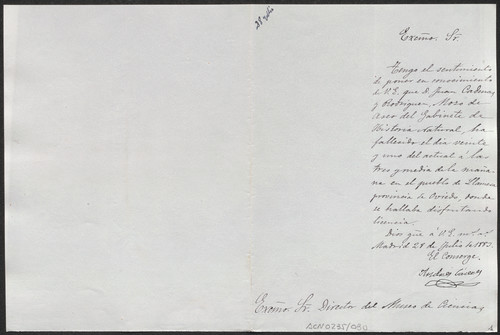 Excmo. Sr.
Tengo el sentimiento
de poner en conocimiento
de V.E. que D. Juan Cadenas
y Rodriguez, Mozo de
aseo del Gabinete de
Historia Natural, ha
fallecido el dia veinte
y uno del actual á las
tres y media de la maña
na en el pueblo de
provincia de Oviedo, donde
se hallaba disfrutando
licencia.
Dios gue á V.E. m. a.
Madrid 28 de Julio de 1883.
El Conserge.
Excmo. Sr. Director del Museo de Ciencias